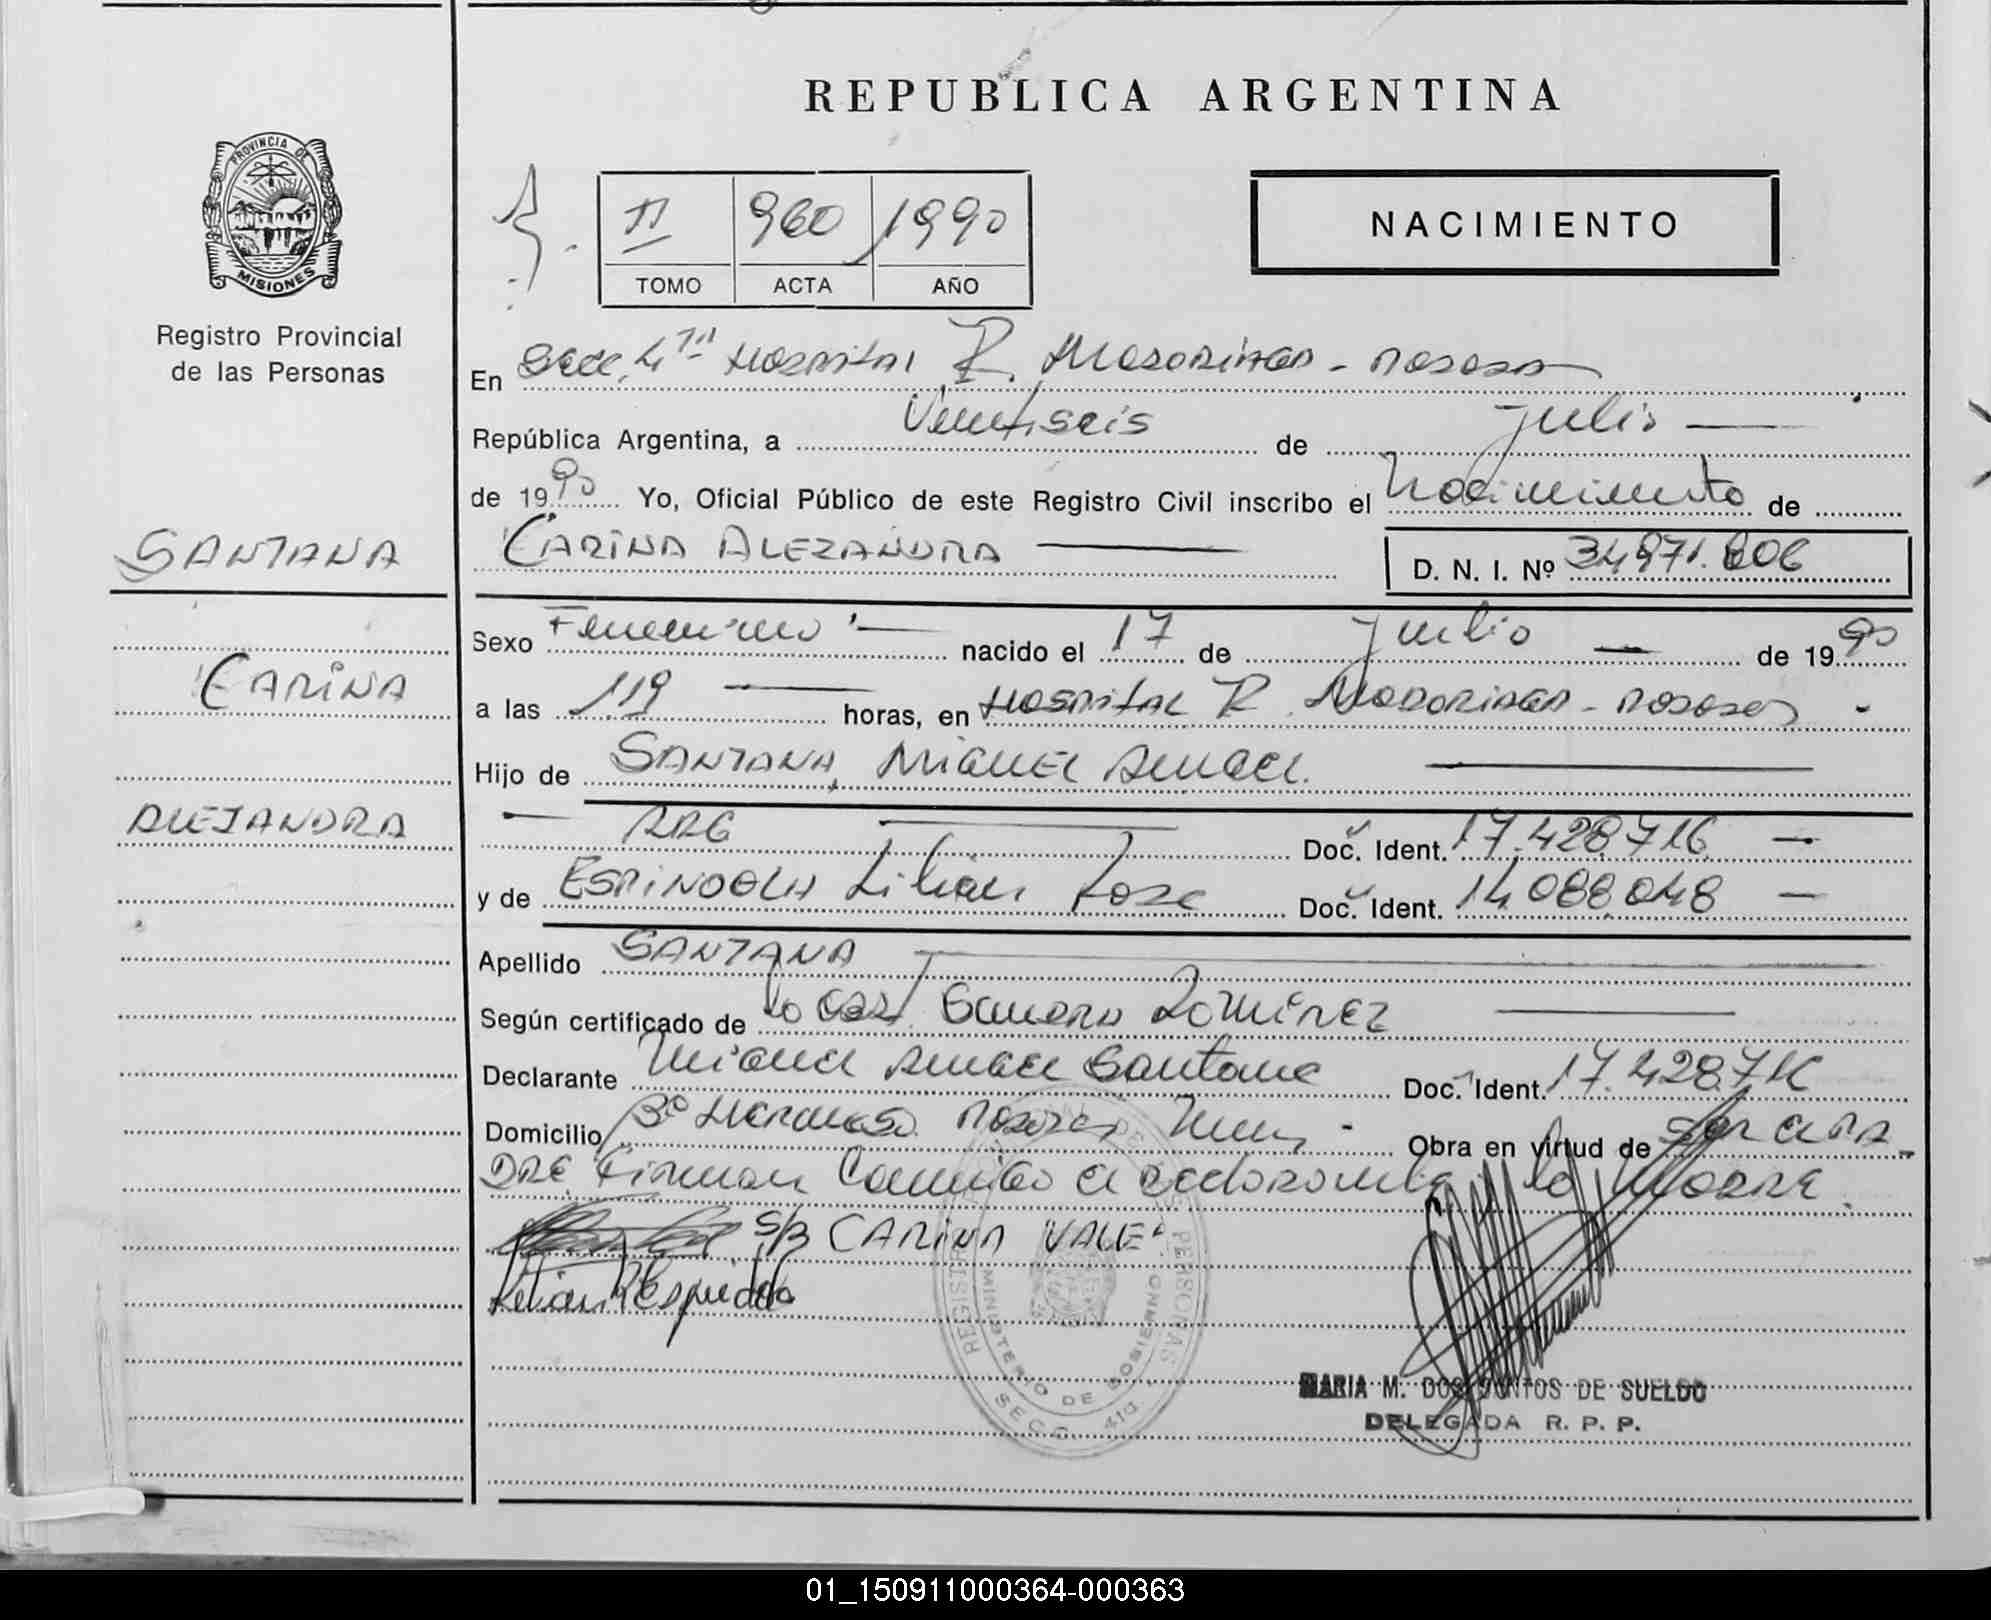 REPUBLICA ARGENTINA
PROVINCIA DE
MISIONES
Registro Provincial
de las Personas
II 960 1990
TOMO ACTA AÑO
NACIMIENTO
En Secc. 4ta Hospital R. Madariaga - Posadas
República Argentina, a Veintiseis de Julio
de 1990 Yo, Oficial Público de este Registro Civil inscribo el Nacimiento de
SANTANA
CARINA ALEJANDRA
D. N. I. Nº
Sexo Femenino nacido el 17 de Julio de 1990
CARINA
a las horas, en Hospital R. Madariaga - Posadas -
Hijo de SANTANA, MIGUEL ANGEL
ALEJANDRA
ARG Doc. Ident. 17.428.716 -
y de ESPINDOLA Lilian Rosa Doc. Ident. 14.088.048 -
Apellido SANTANA
Según certificado de
Declarante Miguel Angel Santana Doc. Ident. 17.428.716
Domicilio Obra en virtud de
DRE Firman Conmigo el declarante la Madre
S/B CARINA VALE
REGISTRO PERSONAS
MINISTERIO DE GOBIERNO
SECC. 4ta.
MARIA M. DOS SANTOS DE SUELDO
DELEGADA R. P. P.
01_150911000364-000363